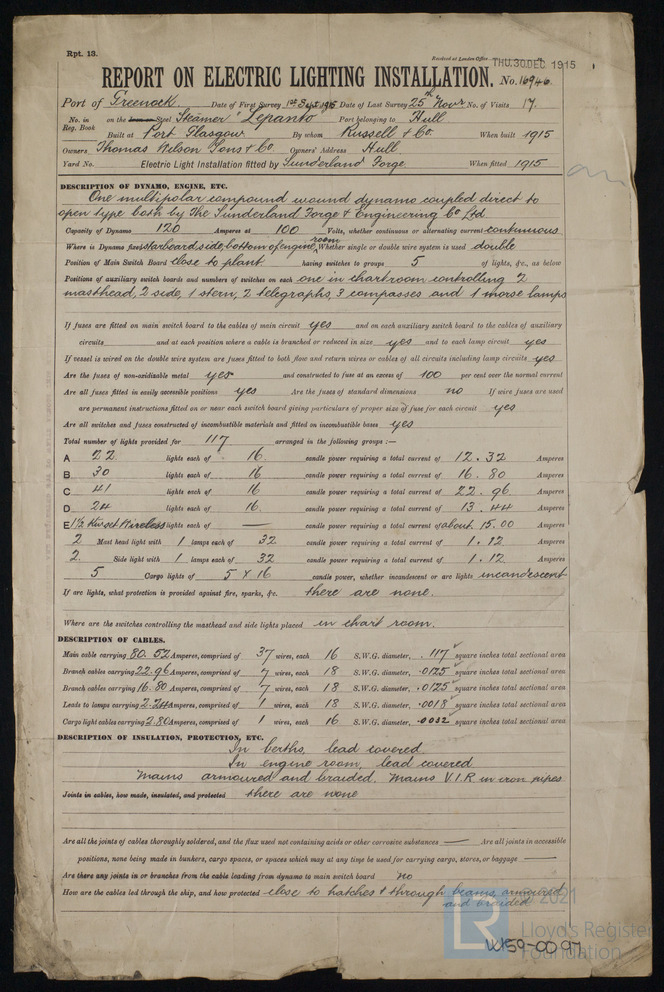 Rpt. 13.
Received at London Office THU.30DEC 1915
REPORT ON ELECTRIC LIGHTING INSTALLATION. No. 16946.
Port of Greenock Date of First Survey 1st Sept 1915 Date of Last Survey 25th Novr No. of Visits 17.
No. in Reg. Book on the Iron or Steel Steamer "Lepanto" Port belonging to Hull
Built at Port Glasgow By whom Russell & Co. When built 1915
Owners Thomas Wilson Sons & Co. Owners' Address Hull
Yard No. Electric Light Installation fitted by Sunderland Forge When fitted 1915
DESCRIPTION OF DYNAMO, ENGINE, ETC.
One multipolar compound wound dynamo coupled direct to
open type both by The Sunderland Forge & Engineering Co Ltd
Capacity of Dynamo 120 Amperes at 100 Volts, whether continuous or alternating current continuous
Where is Dynamo fixed starboard side, bottom of engine room Whether single or double wire system is used double
Position of Main Switch Board close to plant having switches to groups 5 of lights, &c., as below
Positions of auxiliary switch boards and numbers of switches on each one in chartroom controlling 2
masthead, 2 side, 1 stern, 2 telegraphs, 3 compasses and 1 morse lamps
If fuses are fitted on main switch board to the cables of main circuit yes and on each auxiliary switch board to the cables of auxiliary
circuits and at each position where a cable is branched or reduced in size yes and to each lamp circuit yes
If vessel is wired on the double wire system are fuses fitted to both flow and return wires or cables of all circuits including lamp circuits yes
Are the fuses of non-oxidizable metal yes and constructed to fuse at an excess of 100 per cent over the normal current
Are all fuses fitted in easily accessible positions yes Are the fuses of standard dimensions no If wire fuses are used
are permanent instructions fitted on or near each switch board giving particulars of proper size of fuse for each circuit yes
Are all switches and fuses constructed of incombustible materials and fitted on incombustible bases yes
Total number of lights provided for 117 arranged in the following groups :—
A 22 lights each of 16 candle power requiring a total current of 12.32 Amperes
B 30 lights each of 16 candle power requiring a total current of 16.80 Amperes
C 41 lights each of 16 candle power requiring a total current of 22.96 Amperes
D 24 lights each of 16. candle power requiring a total current of 13.44 Amperes
E 1½ Kw set Wireless lights each of — candle power requiring a total current of about 15.00 Amperes
2 Mast head light with 1 lamps each of 32 candle power requiring a total current of 1.12 Amperes
2. Side light with 1 lamps each of 32 candle power requiring a total current of 1.12 Amperes
5 Cargo lights of 5 x 16 candle power, whether incandescent or arc lights incandescent
If arc lights, what protection is provided against fire, sparks, &c. there are none.
Where are the switches controlling the masthead and side lights placed in chart room.
DESCRIPTION OF CABLES.
Main cable carrying 80.52 Amperes, comprised of 37 wires, each 16 S.W.G. diameter, .117 square inches total sectional area
Branch cables carrying 22.96 Amperes, comprised of 7 wires, each 18 S.W.G. diameter, .0125 square inches total sectional area
Branch cables carrying 16.80 Amperes, comprised of 7 wires, each 18 S.W.G. diameter, .0125 square inches total sectional area
Leads to lamps carrying 2.24 Amperes, comprised of 1 wires, each 18 S.W.G. diameter, .0018 square inches total sectional area
Cargo light cables carrying 2.80 Amperes, comprised of 1 wires, each 16 S.W.G. diameter, .0032 square inches total sectional area
DESCRIPTION OF INSULATION, PROTECTION, ETC.
In berths, lead covered.
In engine room, lead covered
Mains armoured and braided. Mains V.I.R in iron pipes
Joints in cables, how made, insulated, and protected there are none
Are all the joints of cables thoroughly soldered, and the flux used not containing acids or other corrosive substances — Are all joints in accessible
positions, none being made in bunkers, cargo spaces, or spaces which may at any time be used for carrying cargo, stores, or baggage —
Are there any joints in or branches from the cable leading from dynamo to main switch board no
How are the cables led through the ship, and how protected close to hatches & through beams, armoured
and braided
© 2021
LR
Lloyd's Register
Foundation
W159-0097